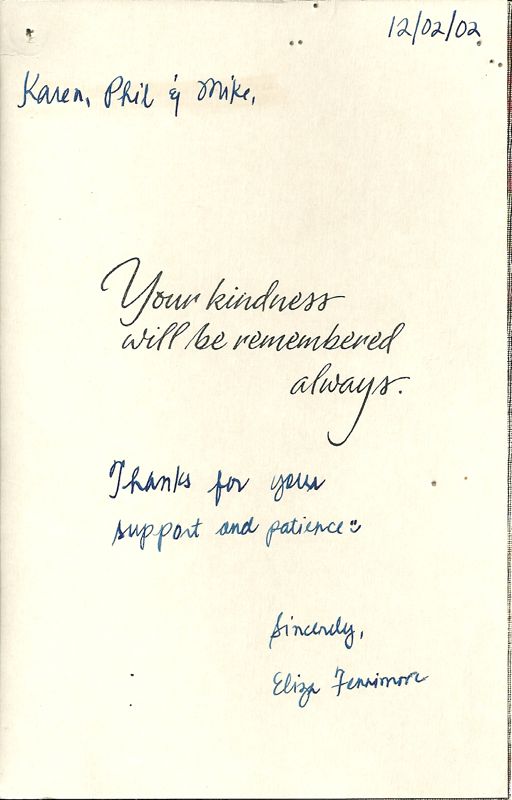 12/02/02
Karen, Phil & Mike,
Your kindness
will be remembered
always.
Thanks for your
support and patience :)
Sincerely,
Eliza Fennimore